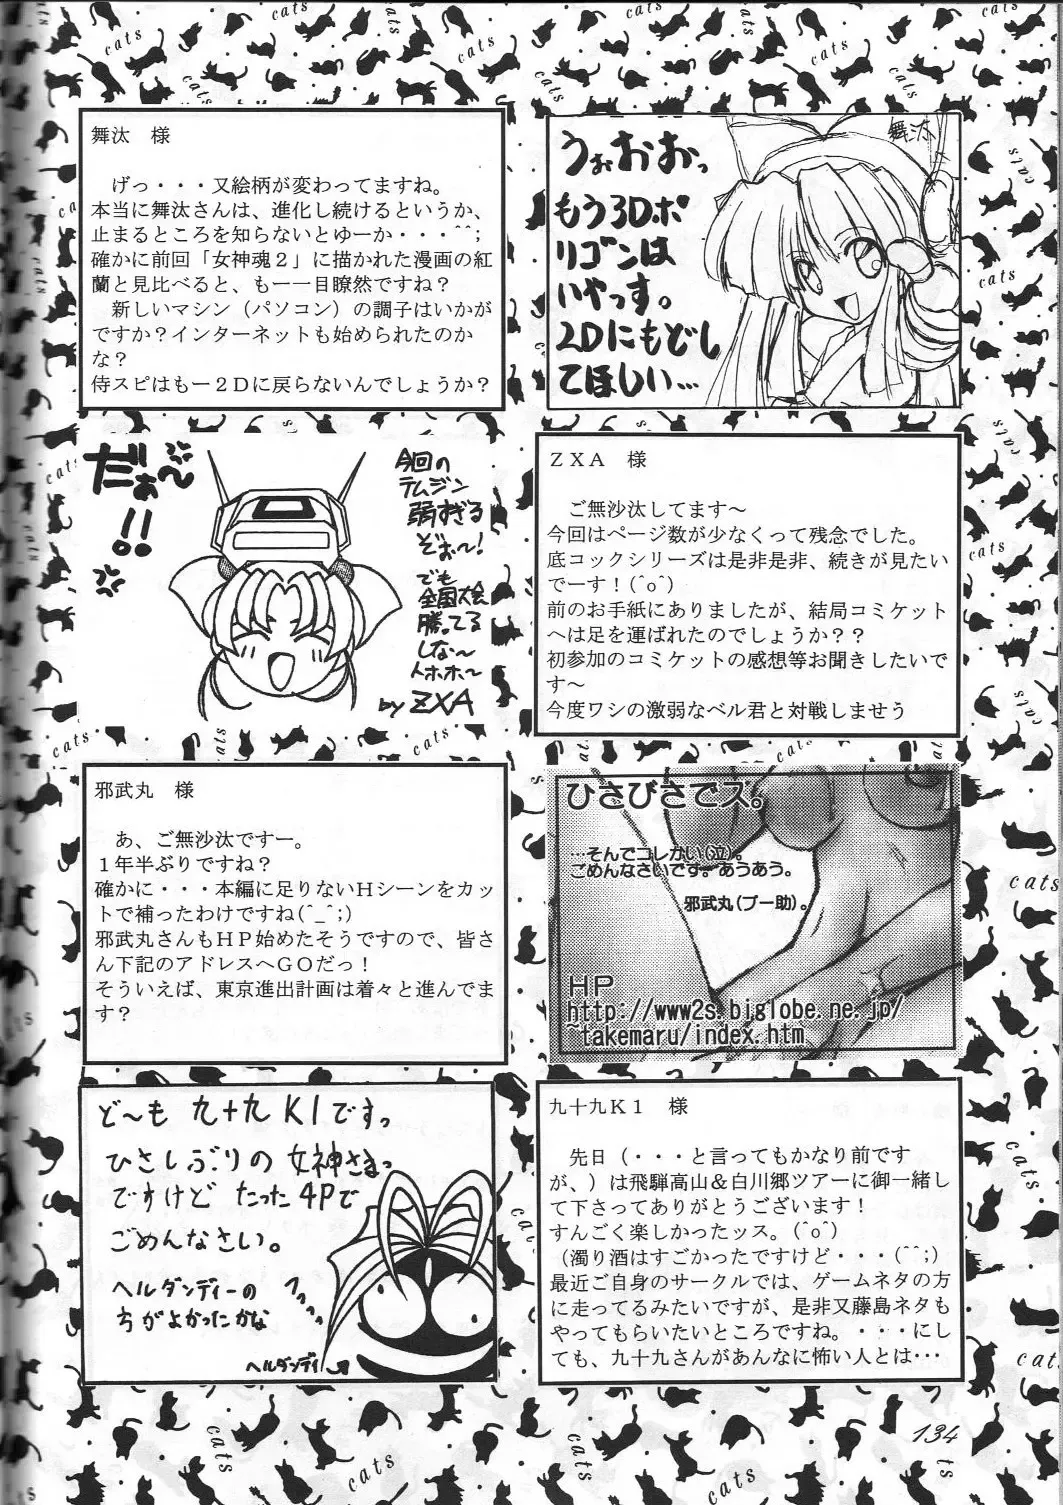 舞汰　様
げっ・・・又絵柄が変わってますね。
本当に舞汰さんは、進化し続けるというか、
止まるところを知らないとゆーか・・・^^;
確かに前回「女神魂２」に描かれた漫画の紅
蘭と見比べると、もー一目瞭然ですね？
新しいマシン（パソコン）の調子はいかが
ですか？インターネットも始められたのか
な？
侍スピはもー２Ｄに戻らないんでしょうか？
舞汰
うぉおおっ
もう3Dポ
リゴンは
いやっす。
2Dにもどし
てほしい…
だぁ〜!!
今回の
テムジン
弱すぎる
ぞぉ〜!
でも
全国大会
勝ってる
しな〜
ホホ〜
by ZXA
ＺＸＡ　様
ご無沙汰してます〜
今回はページ数が少なくって残念でした。
底コックシリーズは是非是非、続きが見たい
でーす！(^o^)
前のお手紙にありましたが、結局コミケット
へは足を運ばれたのでしょうか？？
初参加のコミケットの感想等お聞きしたいで
す〜
今度ワシの激弱なベル君と対戦しませう
邪武丸　様
あ、ご無沙汰ですー。
１年半ぶりですね？
確かに・・・本編に足りないＨシーンをカッ
トで補ったわけですね(^_^;)
邪武丸さんもＨＰ始めたそうですので、皆さ
ん下記のアドレスへＧＯだっ！
そういえば、東京進出計画は着々と進んでま
す？
ひさびさでス。
…そんでコレかい(泣)。
ごめんなさいです。あうあう。
邪武丸(ブー助)。
HP
http://www2s.biglobe.ne.jp/
~takemaru/index.htm
ど〜も 九十九K1ですっ
ひさしぶりの 女神さまっ
ですけど たった4Pで
ごめんなさい。
ヘルダンディーの
方がよかったかな
ヘルダンディ
九十九Ｋ１　様
先日（・・・と言ってもかなり前です
が、）は飛騨高山＆白川郷ツアーに御一緒し
て下さってありがとうございます！
すんごく楽しかったッス。(^o^)
（濁り酒はすごかったですけど・・・(^^;)
最近ご自身のサークルでは、ゲームネタの方
に走ってるみたいですが、是非又藤島ネタも
やってもらいたいところですね。・・・にし
ても、九十九さんがあんなに怖い人とは…
134
cats